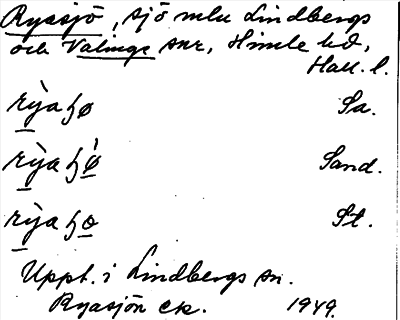 Ryasjö, sjö mlu Lindbergs
och Valinge snr, Himle hd,
Hall. l.
rỳaɧø Sa.
rỳaɧǿ Sand.
rỳaɧo St.
Uppt. i Lindbergs sn.
Ryasjön ek. 1949.